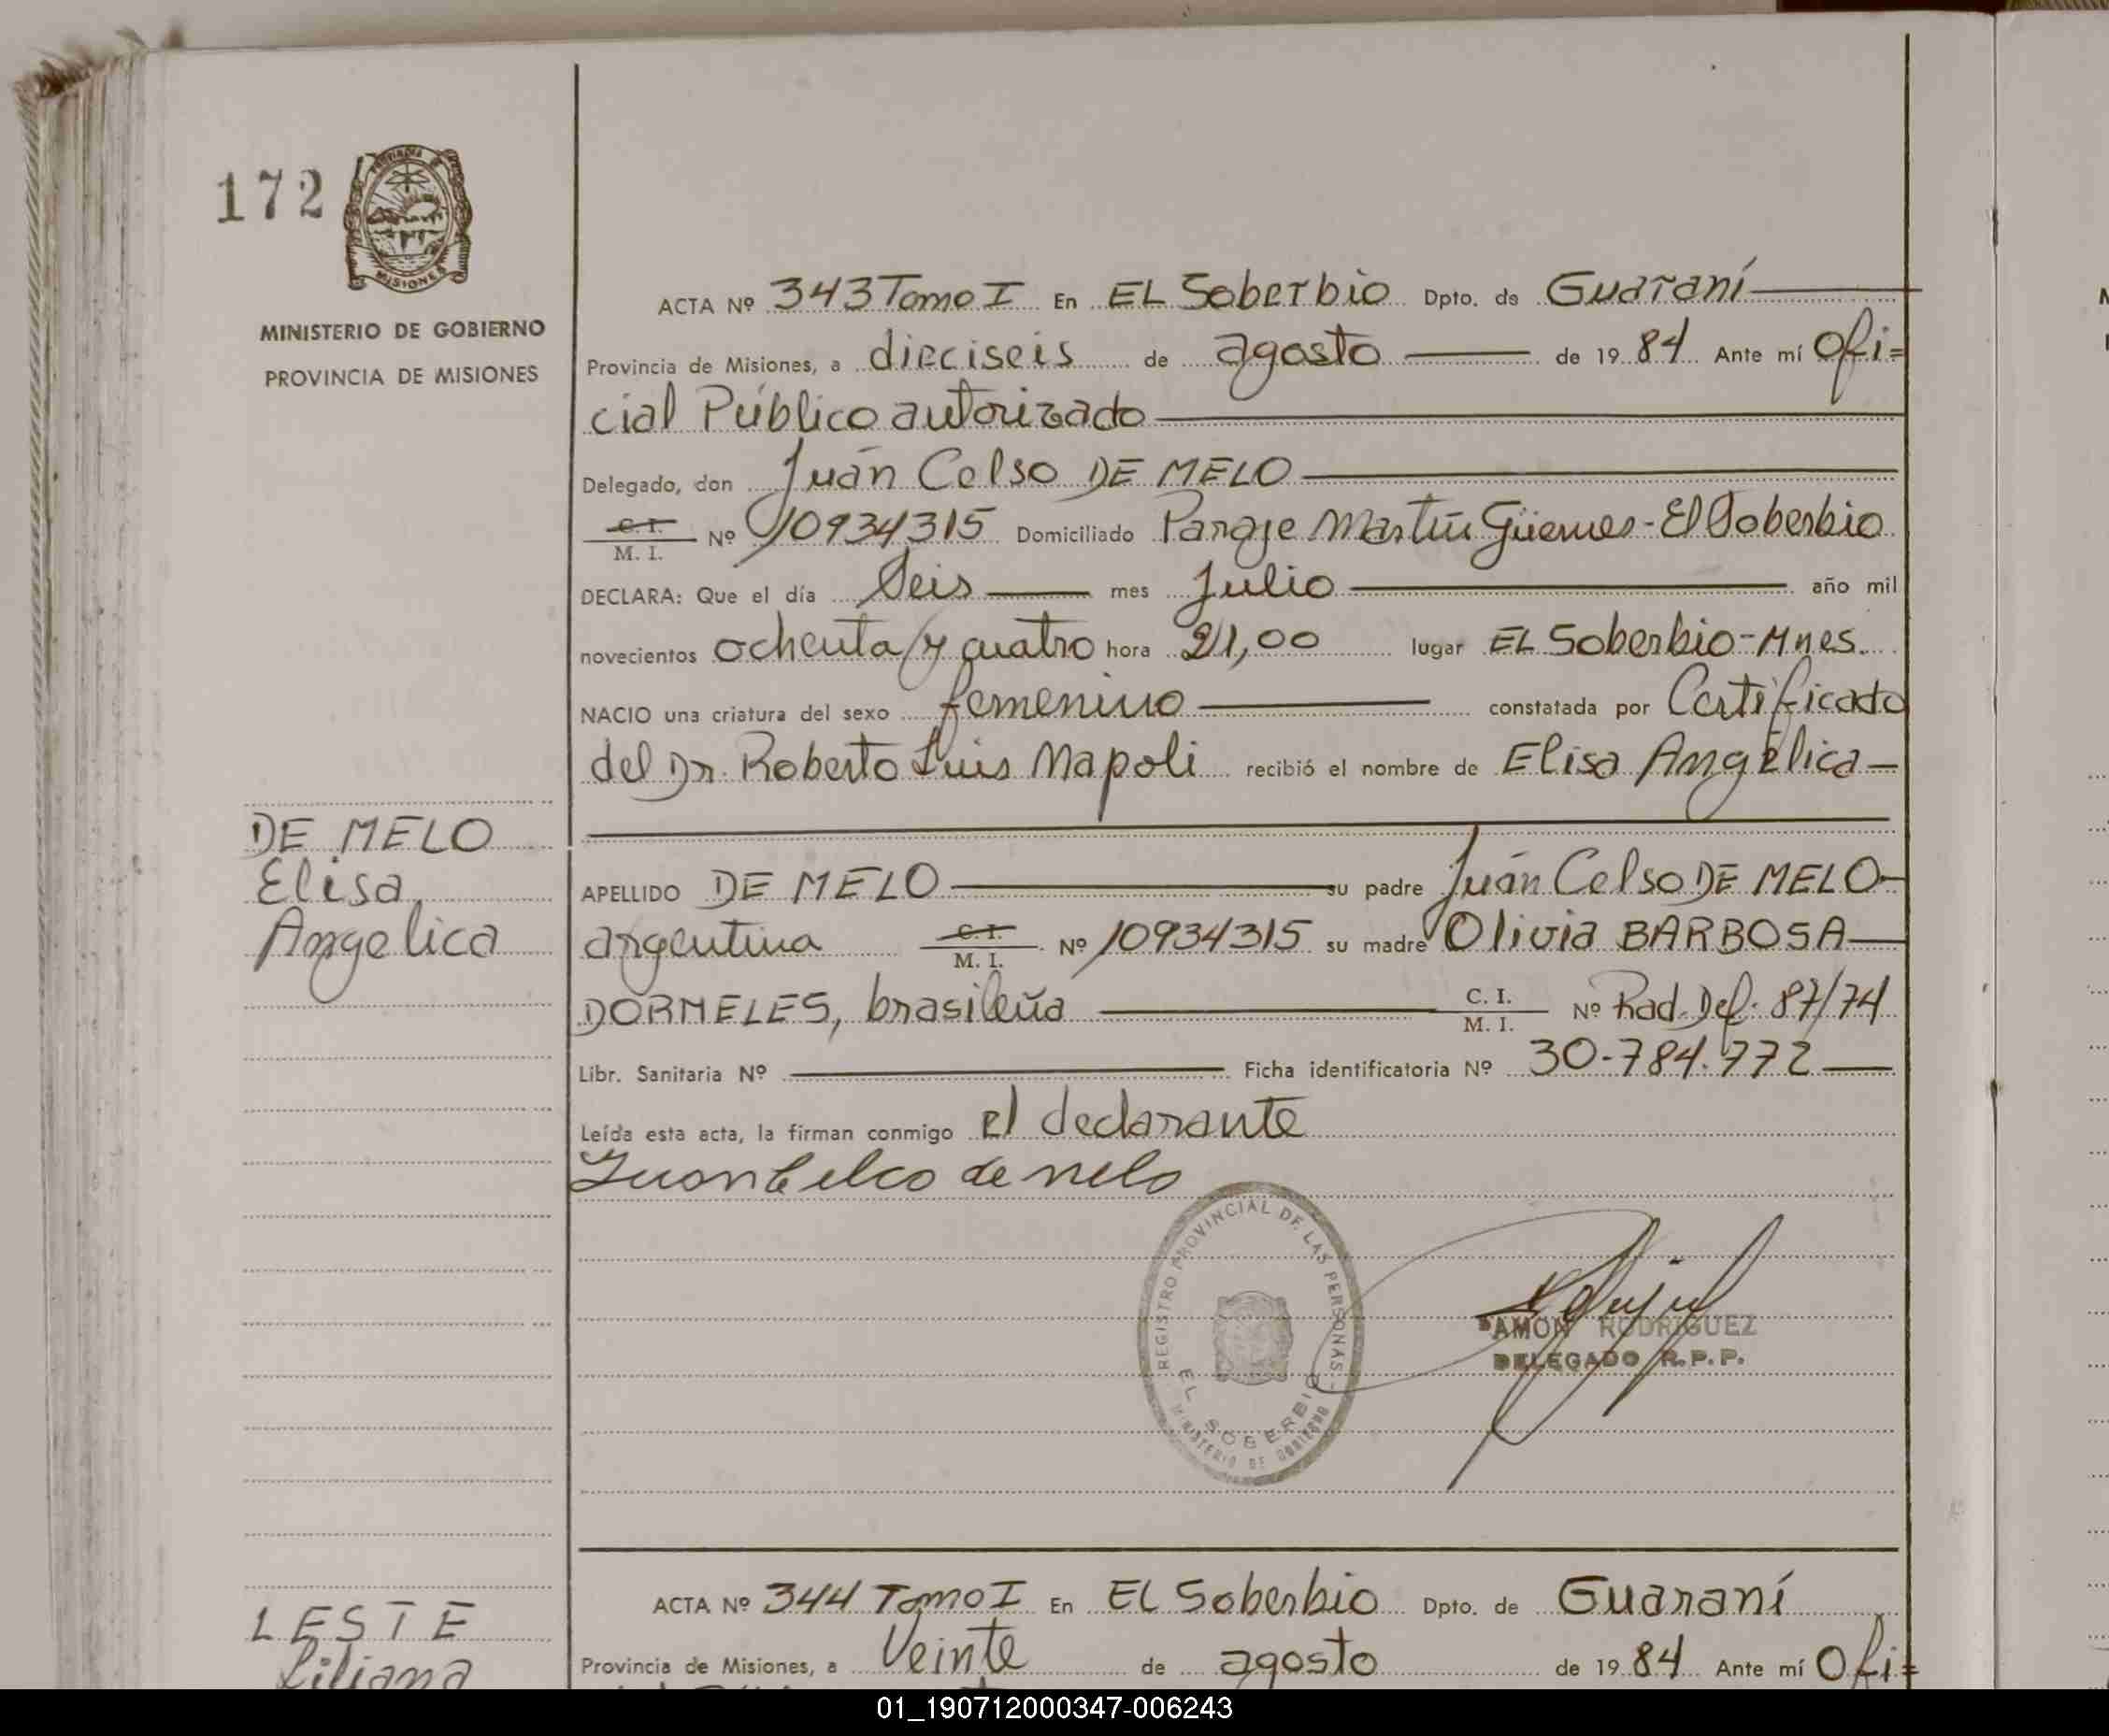 172
PROVINCIA DE
MISIONES
MINISTERIO DE GOBIERNO
PROVINCIA DE MISIONES
ACTA Nº 343 Tomo I En EL Soberbio Dpto. de Guaraní
Provincia de Misiones, a dieciseis de agosto de 19 84 Ante mí Ofi=
cial Público autorizado
Delegado, don Juán Celso DE MELO
C. I.
M. I. Nº 10934315 Domiciliado Paraje Martín Güemes - El Soberbio
DECLARA: Que el día Seis mes Julio año mil
novecientos ochenta y cuatro hora 21,00 lugar EL Soberbio - Mnes.
NACIO una criatura del sexo femenino constatada por Certificado
del Dr. Roberto Luis Napoli recibió el nombre de Elisa Angélica
DE MELO
Elisa
Angelica
APELLIDO DE MELO su padre Juán Celso DE MELO
argentina C. I.
M. I. Nº 10934315 su madre Olivia BARBOSA
DORNELES, brasileña C. I.
M. I. Nº Rad. Def. 87/74
Libr. Sanitaria Nº Ficha identificatoria Nº 30.784.772
Leída esta acta, la firman conmigo el declarante
Juan Celco de melo
REGISTRO PROVINCIAL DE LAS PERSONAS -
EL SOBERBIO
MINISTERIO DE GOBIERNO
RAMON RODRIGUEZ
DELEGADO R.P.P.
ACTA Nº 344 Tomo I En EL Soberbio Dpto. de Guaraní
LESTE
Liliana
Provincia de Misiones, a Veinte de agosto de 19 84 Ante mí Ofi=
01_190712000347-006243